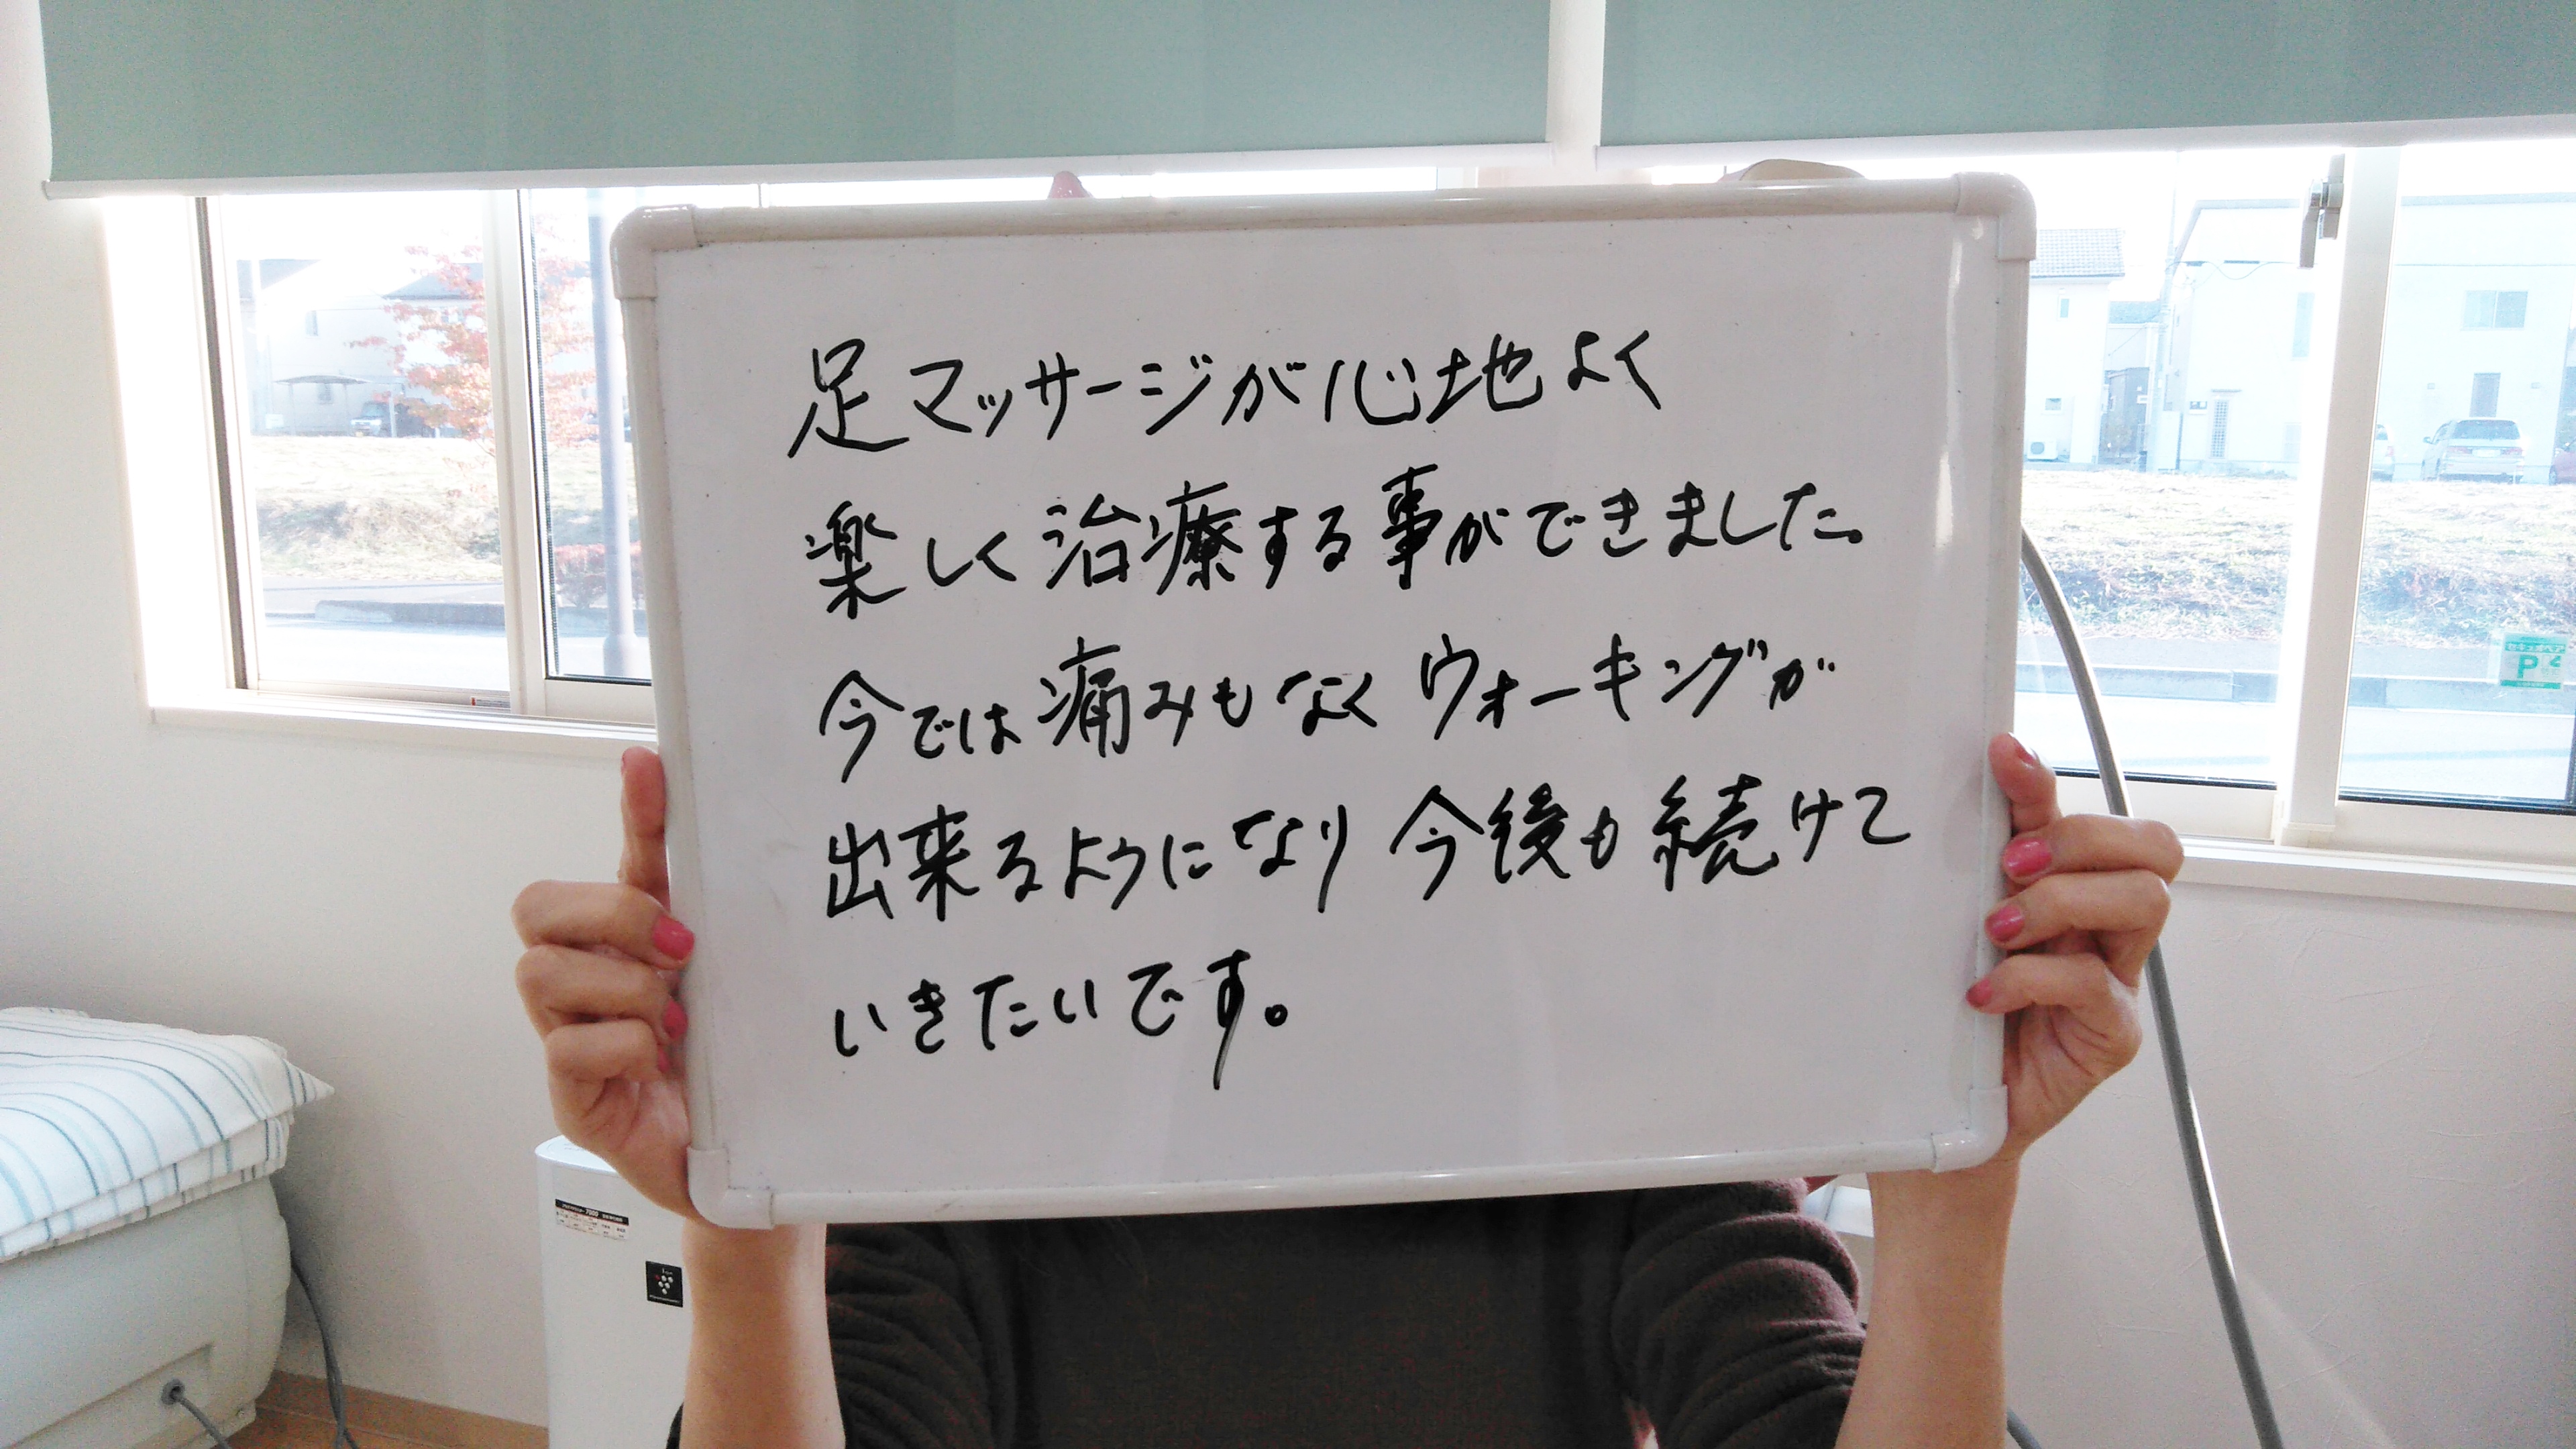 足マッサージが心地よく
楽しく治療する事ができました。
今では痛みもなくウォーキングが
出来るようになり今後も続けて
いきたいです。
P
7000